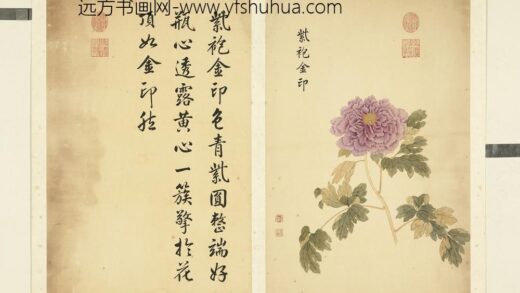 远方书画网-www.yfshuhua.com
紫袍金印
紫袍金印色青紫圆整端好
瓶心透露黄心一簇擎於花
顶如金印然